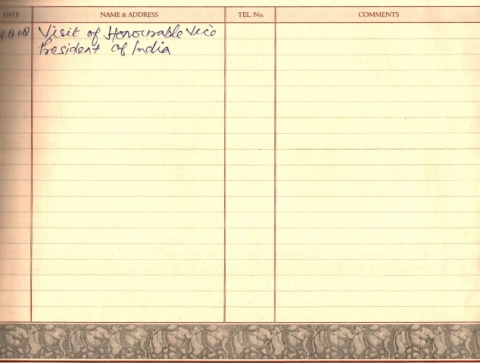 DATE NAME & ADDRESS TEL. No. COMMENTS
Visit of Honourable Vice
President of India